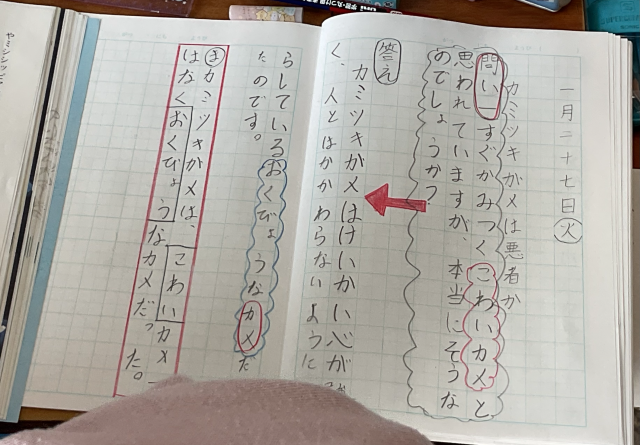 一月二十七日㊋
カミツキガメは悪者か
問い すぐかみつくこわいカメと
思われていますが、本当にそうな
のでしょうか？
答え
カミツキガメはけいかい心が
く、人とはかかわらないように
らしているおくびょうなカメだ
たのです。
ま カミツキガメは、こわいカメ
はなくおくびょうなカメだった。